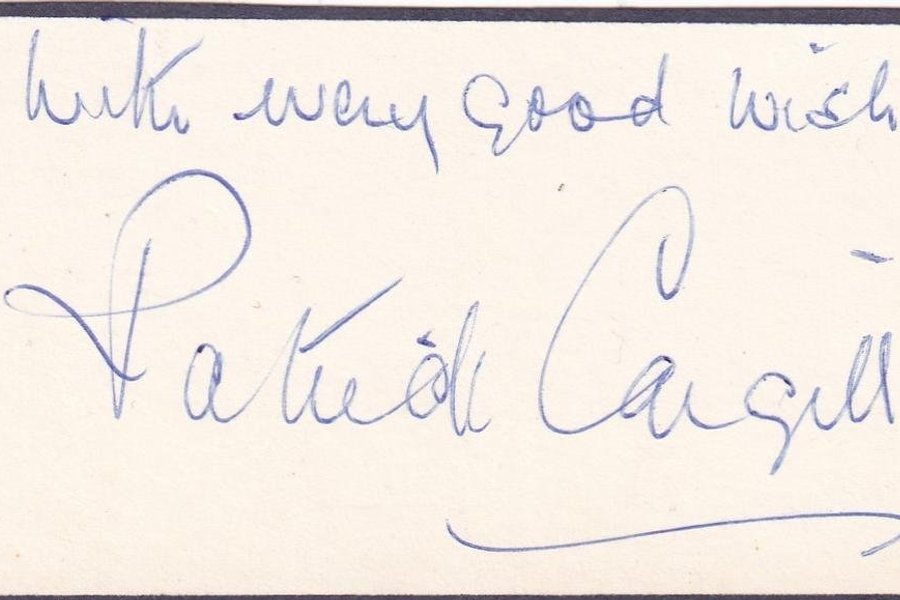 With very good wish
Patrick Cargill